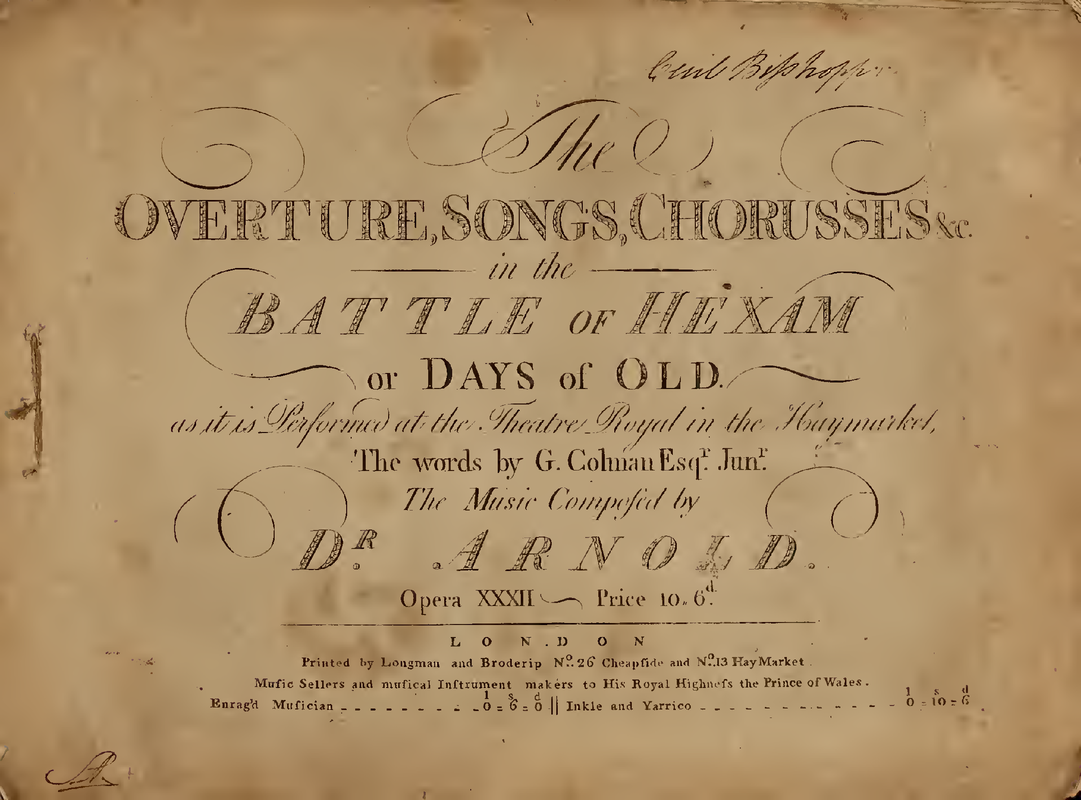 Cecil Bisshopp
The
OVERTURE, SONGS, CHORUSSES &c.
in the
BATTLE OF HEXAM
or DAYS of OLD.
as it is Performed at the Theatre Royal in the Haymarket,
The words by G. Colman Esqr. Junr.
The Music Composed by
DR. ARNOLD.
Opera XXXII Price 10. 6d.
LONDON
Printed by Longman and Broderip No. 26 Cheapſide and No. 13 HayMarket.
Muſic Sellers and muſical Inſtrument makers to His Royal Highneſs the Prince of Wales.
l s d l s d
Enrag'd Muſician - - - - - - - - - 0=6=0 || Inkle and Yarrico - - - - - - - - - - - - - 0=10=6